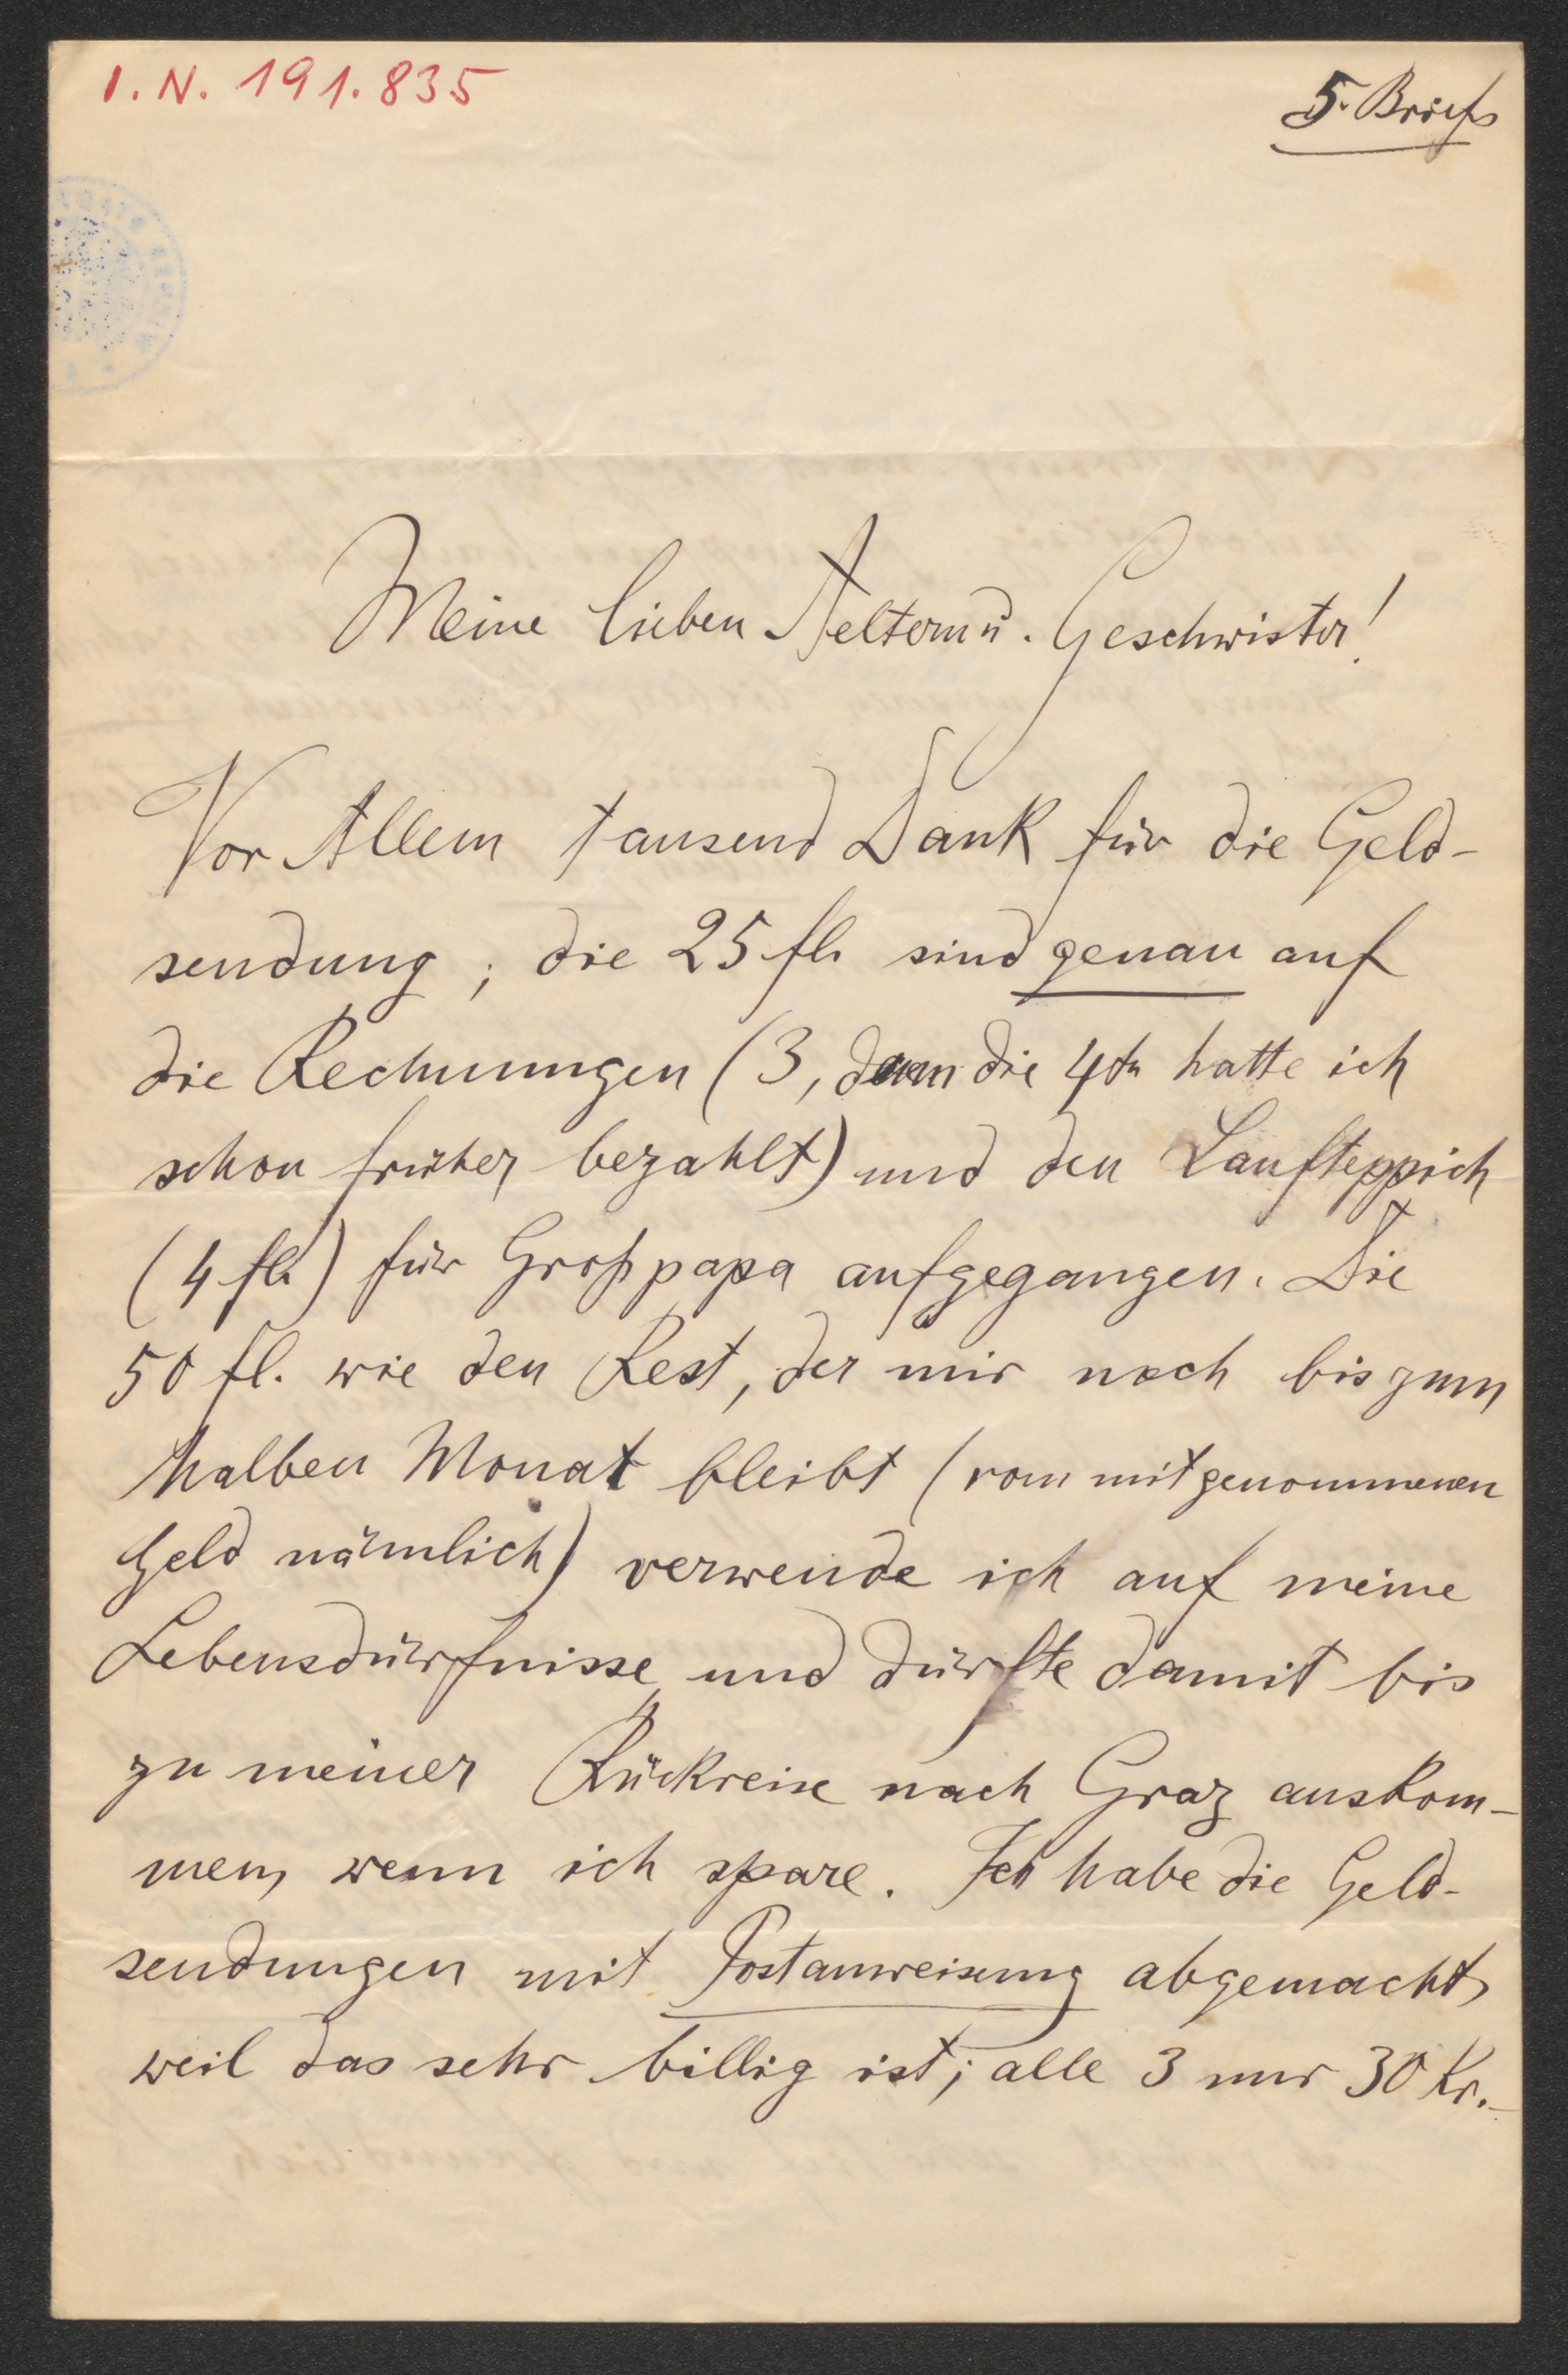 I. N. 191.835
5. Brief
Meine lieben Aeltern u. Geschwister!
Vor Allem tausend Dank für die Geld-
sendung; die 25 fl. sind genau auf
die Rechnungen (3, denn die 4te hatte ich
schon früher bezahlt) und den Laufteppich
(4 fl.) für Großpapa aufgegangen. Die
50 fl. wie den Rest, der mir noch bis zum
halben Monat bleibt (vom mitgenommenen
Geld nämlich) verwende ich auf meine
Lebensdürfnisse und dürfte damit bis
zu meiner Rückreise nach Graz auskom-
men, wenn ich spare. Ich habe die Geld-
sendungen mit Postanweisung abgemacht,
weil das sehr billig ist; alle 3 nur 30 Kr.–